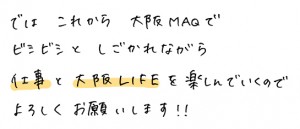 では これから 大阪MAQで
ビシビシと しごかれながら
仕事と大阪LIFEを楽しんでいくので
よろしくお願いします!!